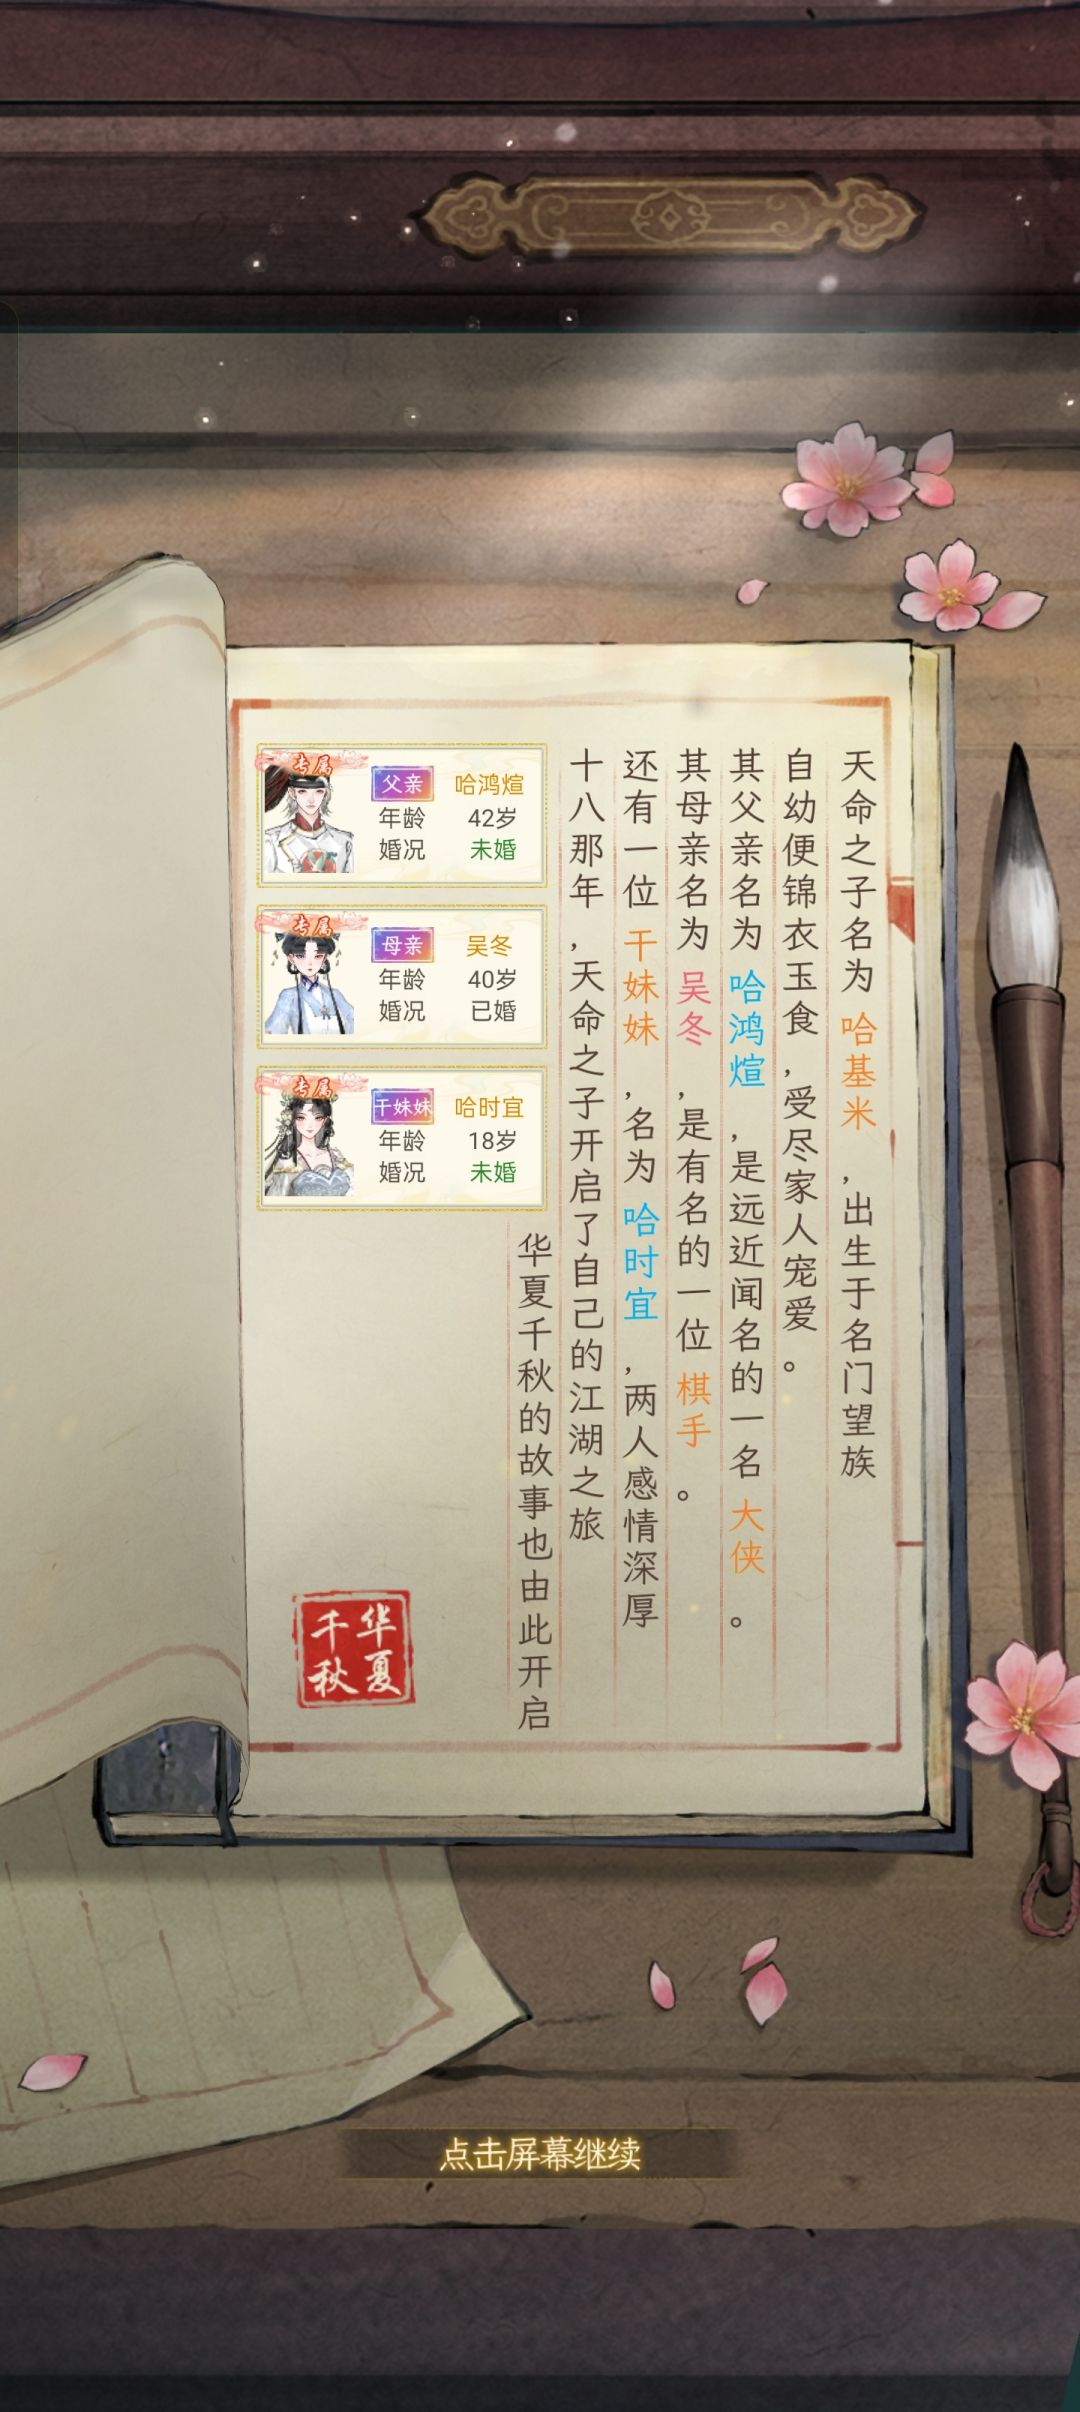 天命之子名为 哈基米 ,出生于名门望族
自幼便锦衣玉食,受尽家人宠爱。
其父亲名为 哈鸿煊 ,是远近闻名的一名 大侠 。
其母亲名为 吴冬 ,是有名的一位 棋手 。
还有一位 干妹妹 ,名为 哈时宜 ,两人感情深厚
十八那年,天命之子开启了自己的江湖之旅
华夏千秋的故事也由此开启
专属
父亲 哈鸿煊
年龄 42岁
婚况 未婚
专属
母亲 吴冬
年龄 40岁
婚况 已婚
专属
干妹妹 哈时宜
年龄 18岁
婚况 未婚
华夏
千秋
点击屏幕继续